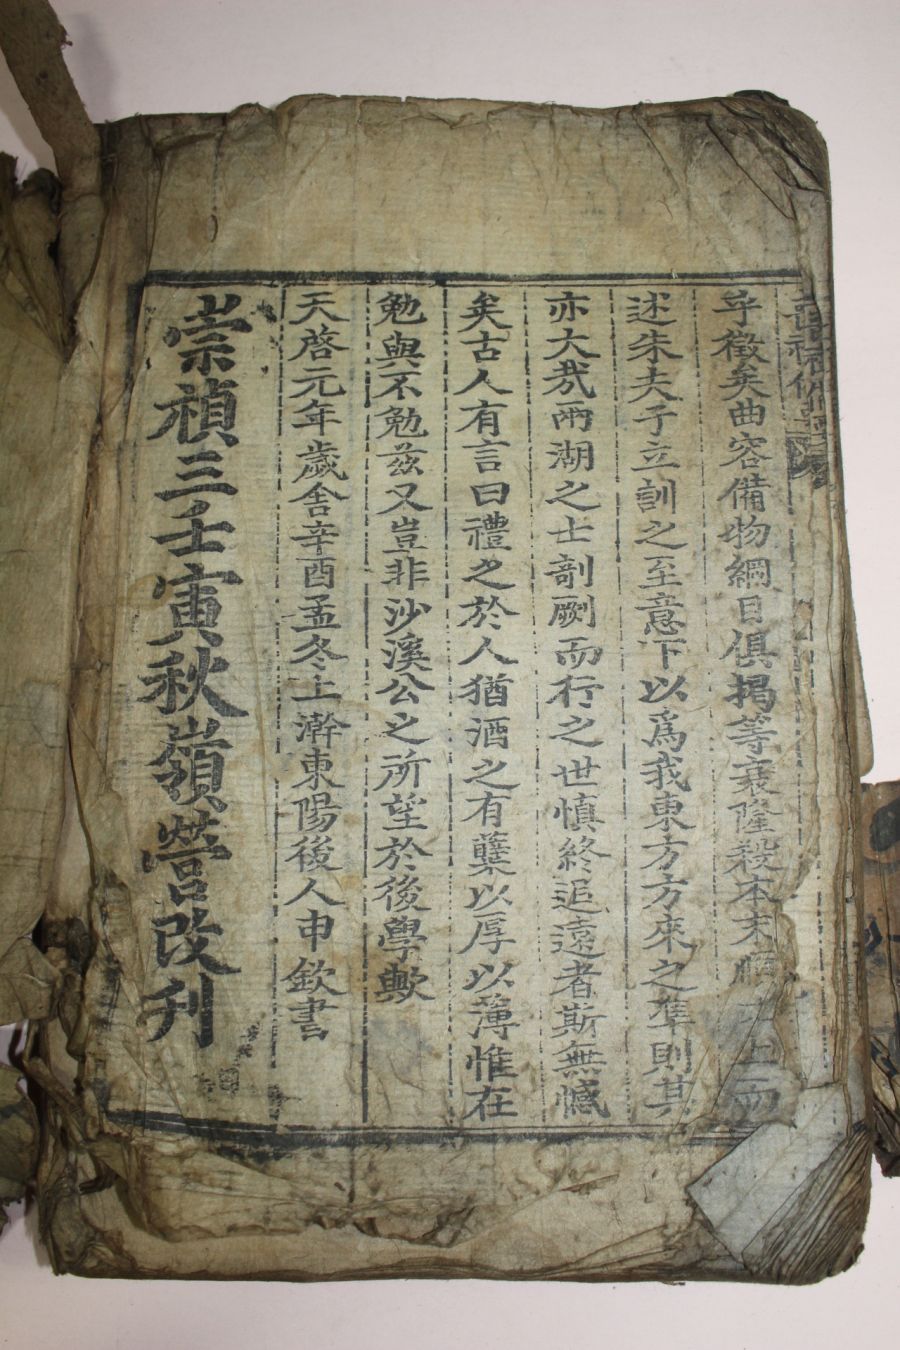 乎徵矣曲容備物綱目俱揭等衰隆殺本末
上而
述朱夫子立訓之至意下以爲我東方方來之準則其
亦大㢤兩湖之士剞劂而行之世愼終追遠者斯無憾
矣古人有言曰禮之於人猶酒之有蘖以厚以薄惟在
勉與不勉兹又豈非沙溪公之所望於後學歟
天啓元年歲舍辛酉孟冬上澣東陽後人申欽書
崇禎三壬寅秋嶺營改刊